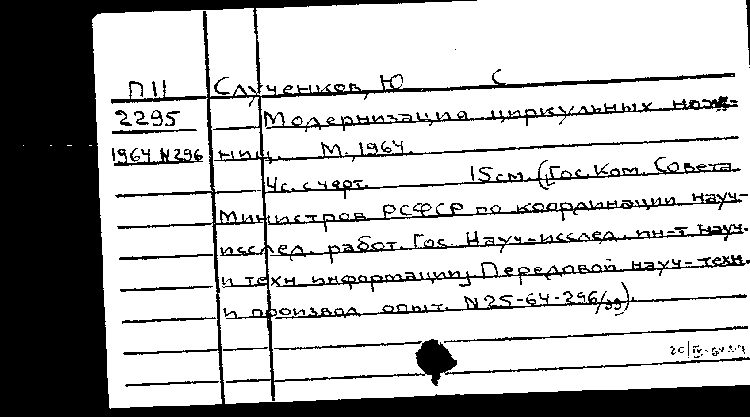 П11 Служенков, Ю С
2295 Модернизация циркульных нож-
1964 N296 ниц. М., 1964.
4с. с черт. 15 см. (Гос. Ком. Совета
Министров РСФСР по координации науч-
исслед. работ. Гос. Науч-исслед. ин-т науч.
и техн информации) Передовой науч-техн.
и производ опыт. N 25-64-296/39).